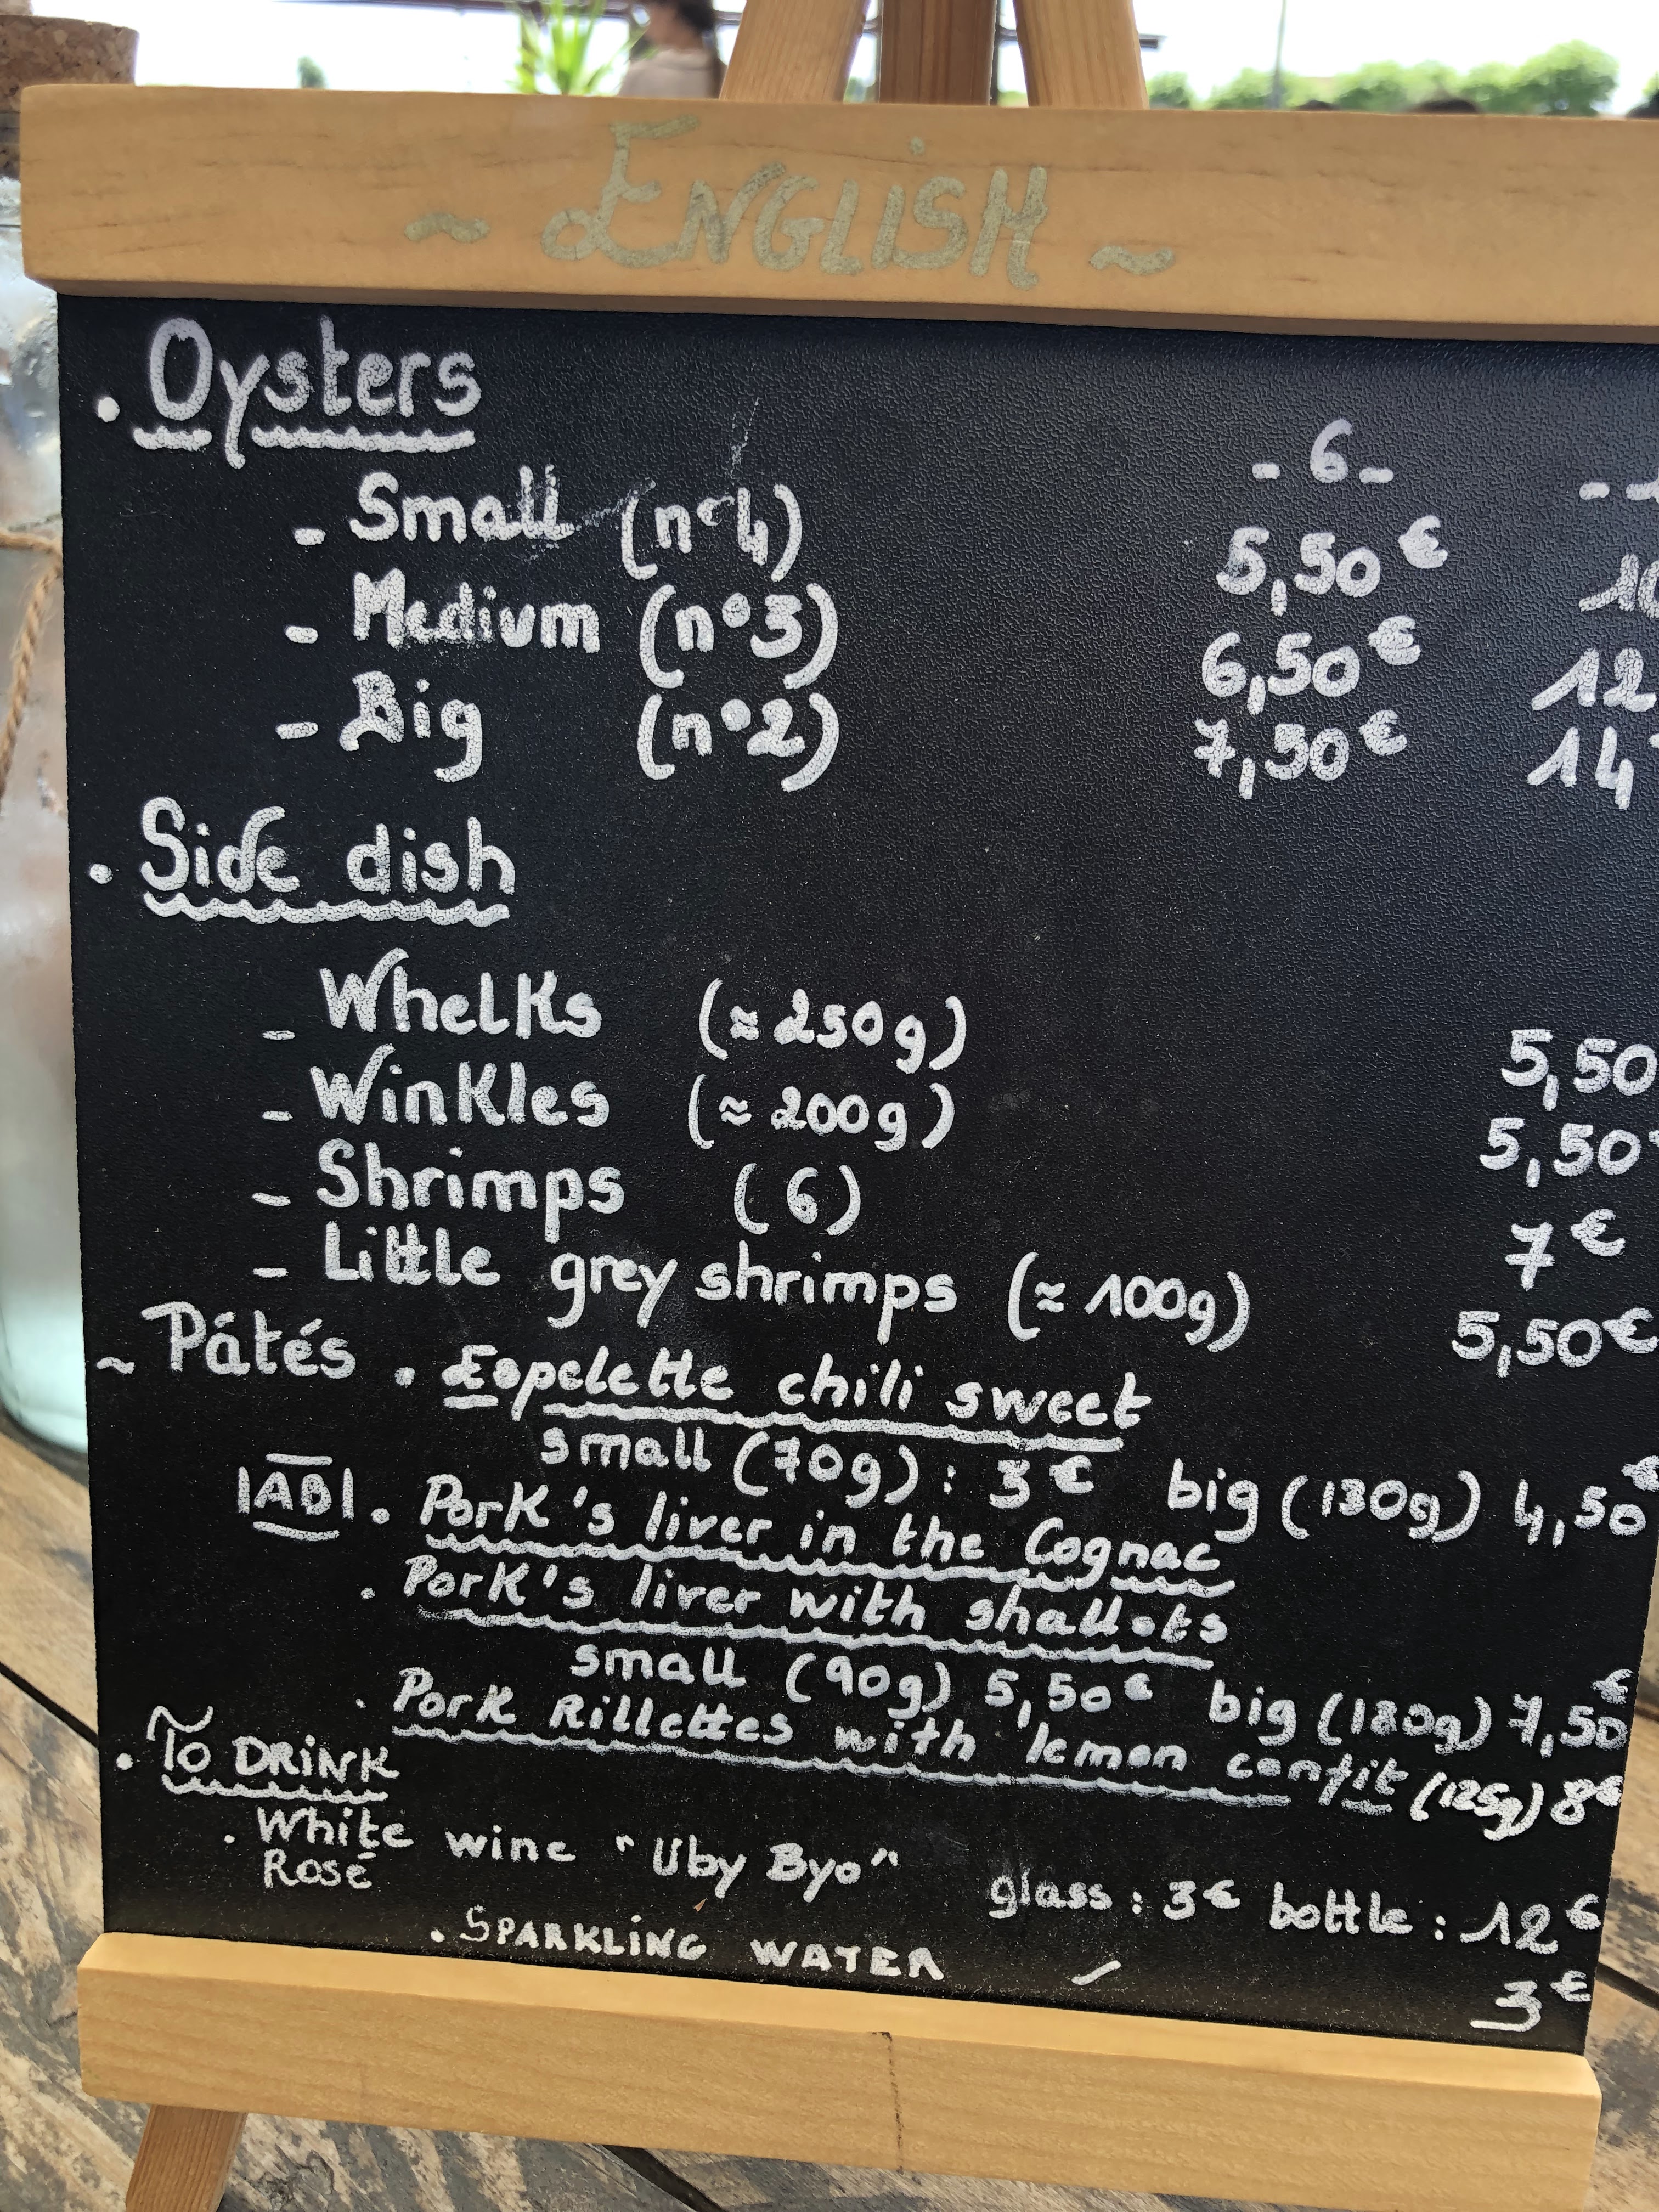 ~ ENGLISH ~
. Oysters
- 6 -
- Small (n°4) 5,50€
- Medium (n°3) 6,50€ 12
- Big (n°2) 7,50€ 14
. Side dish
- Whelks (≈ 250g) 5,50
- Winkles (≈ 200g) 5,50
- Shrimps (6) 7€
- Little grey shrimps (≈ 100g) 5,50€
~ Pátés . Espelette chili sweet
small (70g) : 3€ big (130g) 4,50€
|AB| . Pork's liver in the Cognac
. Pork's liver with shallots
small (90g) 5,50€ big (180g) 7,50€
. Pork Rillettes with lemon confit (125g) 8€
. To DRiNK
. White wine "Uby Byo" glass : 3€ bottle : 12€
Rosé
. SPARKLiNG WATER / 3€